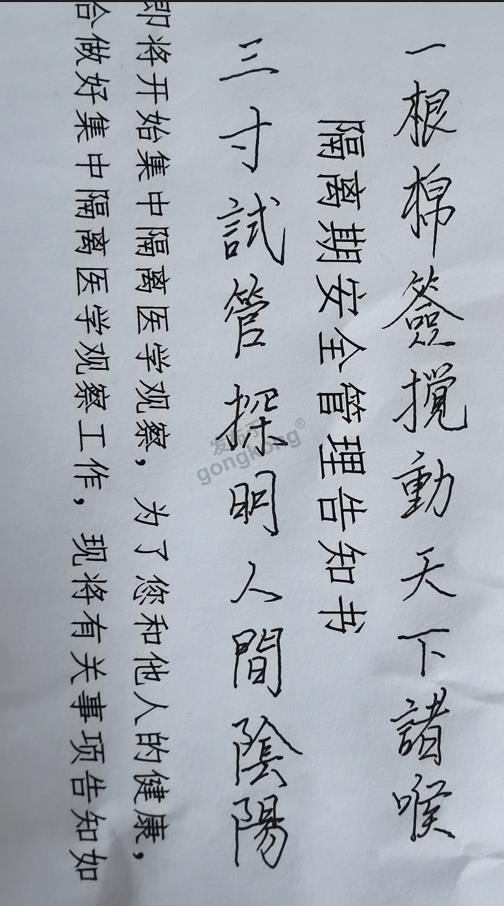 一根棉簽攪動天下諸喉
隔离期安全管理告知书
三寸試管探明人間陰陽
即将开始集中隔离医学观察，为了您和他人的健康，
合做好集中隔离医学观察工作，现将有关事项告知如
gongkong®